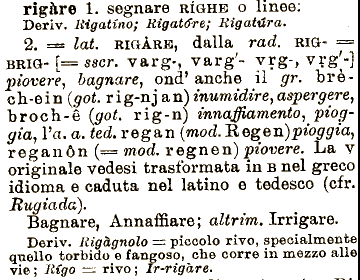 rigàre 1. segnare RÍGHE o linee:
Deriv. Rigatíno; Rigatóre; Rigatúra.
2. = lat. RIGÀRE, dalla rad. RIG- =
BRIG- [= sscr. varg-, varg'- vṛg-, vṛg'-]
piovere, bagnare, ond' anche il gr. brè-
ch-ein (got. rig-njan) inumidire, aspergere,
broch-ê (got. rig-n) innaffiamento, piog-
gia, l'a. a. ted. regan (mod. Regen) pioggia,
reganôn (= mod. regnen) piovere. La V
originale vedesi trasformata in B nel greco
idioma e caduta nel latino e tedesco (cfr.
Rugiada).
Bagnare, Annaffiare; altrim. Irrigare.
Deriv. Rigàgnolo = piccolo rivo, specialmente
quello torbido e fangoso, che corre in mezzo alle
vie; Rígo = rivo; Ir-rigàre.